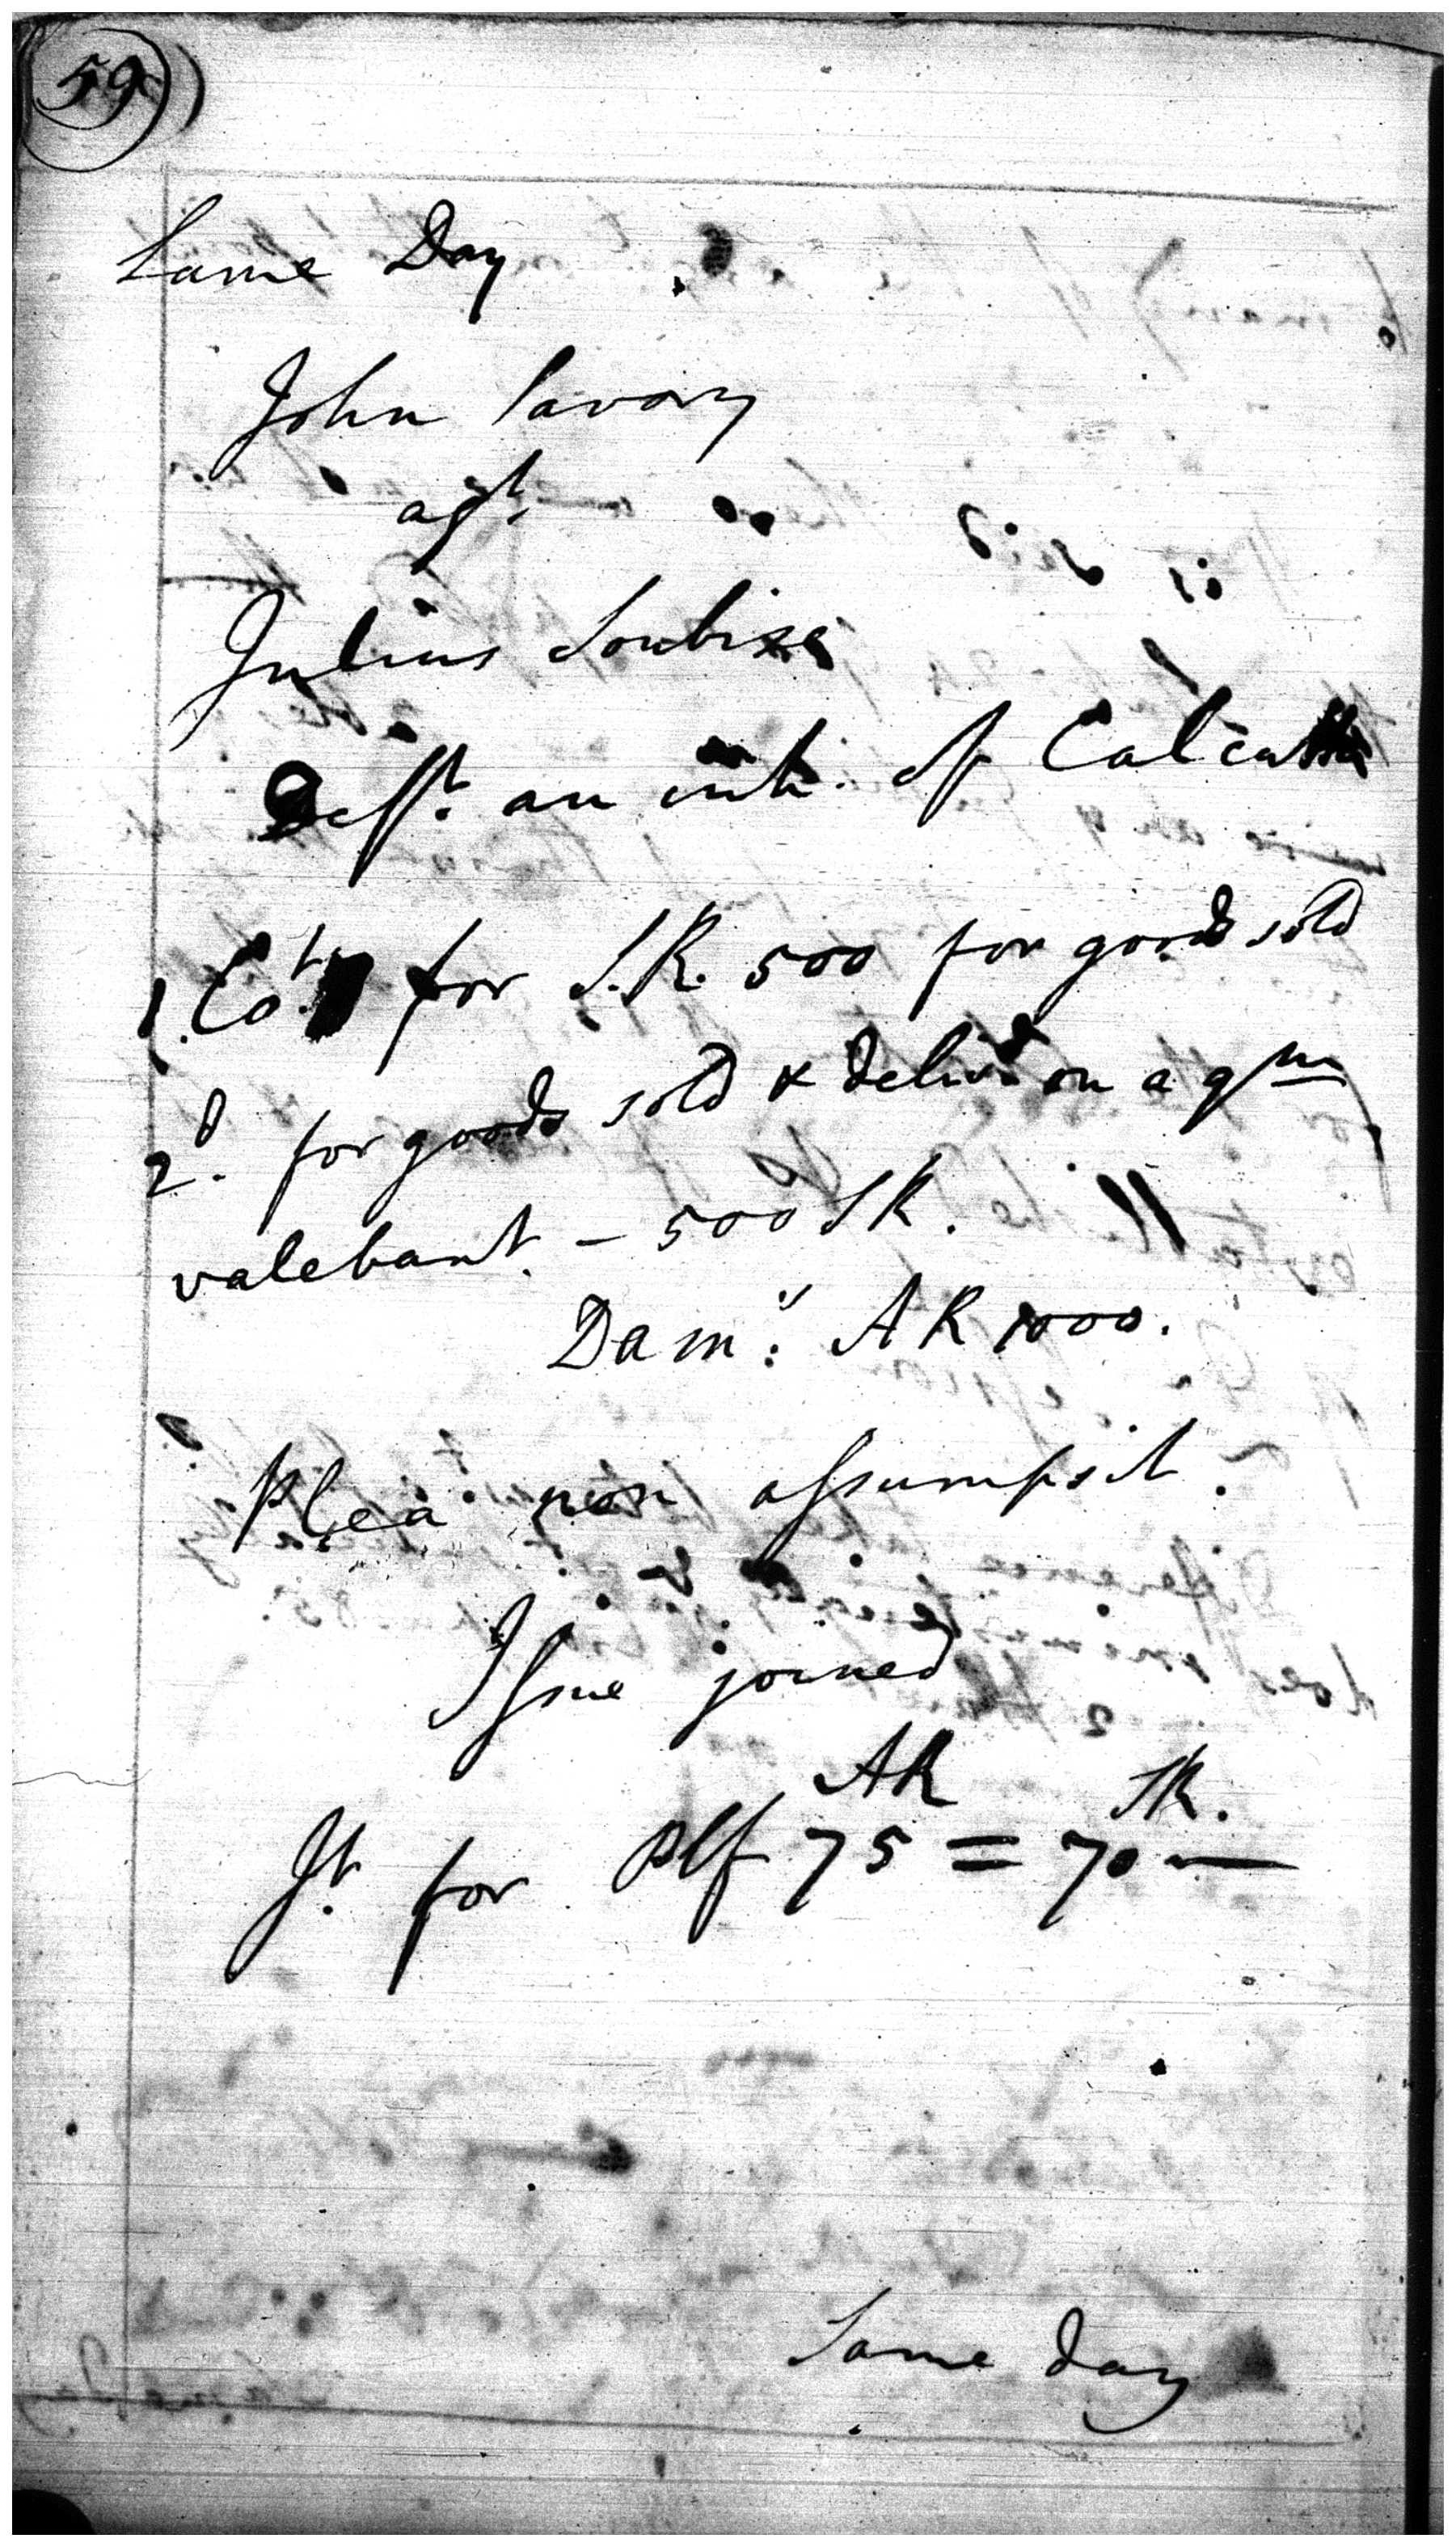 59
Same Day
John Savory
agt.
Julius Soubise
Deft. an inh. of Calcutta
1. Ct. for S.R. 500 for goods sold
2d. for goods sold & delivd on a qm
valebant. – 500 SR.
Dams: AR 1000.
Plea non assumpsit.
Issue joined
AR SR.
Jt. for Plf 75 = 70 —
Same day